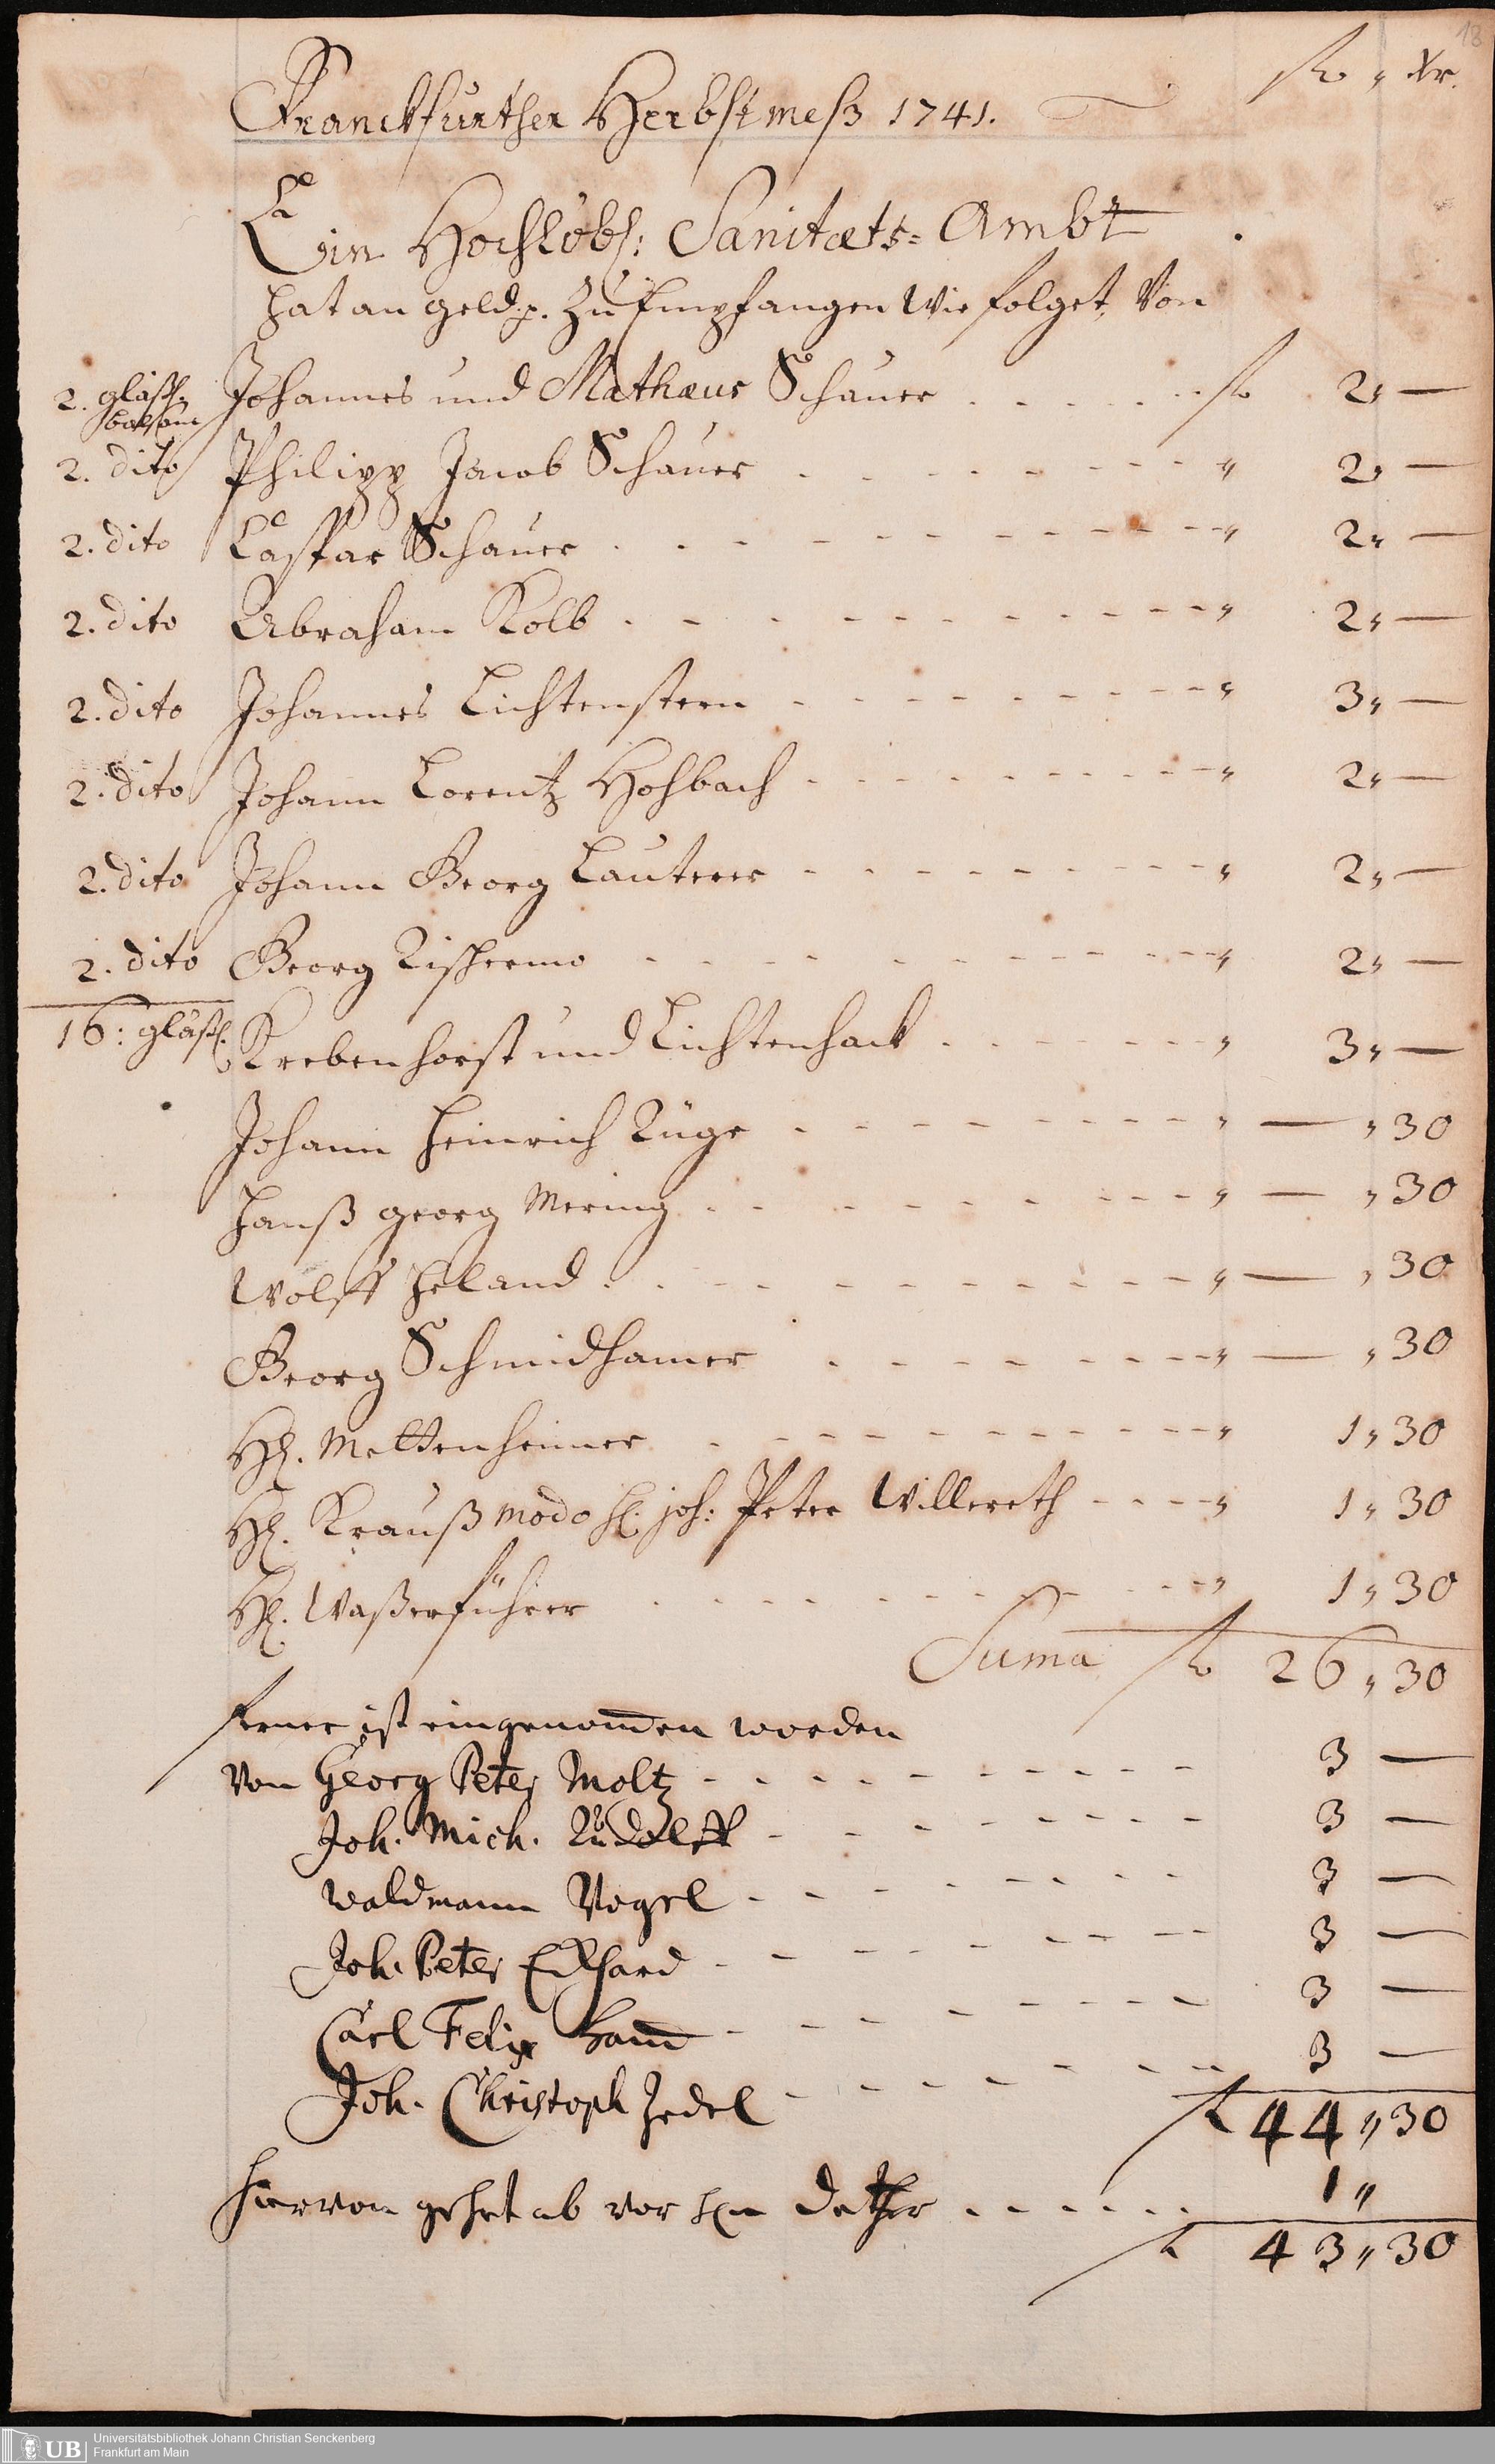 18
fl. „ Xr.
Franckfurther Herbstmeß 1741.
Ein Hochlöbl: Sanitæts=Ambt
hat an geld p. Zu Empfangen Wie folget, Von
2. gläßl. balsam Johannes und Mathæus Schauer . . . . . fl. 2„ —
2. dito Philipp Jacob Schauer . . . . . „ 2„ —
2. dito Caspar Schauer . . . . . „ 2„ —
2. dito Abraham Kolb . . . . . „ 2„ —
2. dito Johannes Lichtenstern . . . . . „ 3„ —
2. dito Johann Lorentz Hohbach . . . . . „ 2„ —
2. dito Johann Georg Lauterer . . . . . „ 2„ —
2. dito Georg . . . . . „ 2„ —
16: gläßl. Krebenhorst und Lichtenhack . . . . . „ 3„ —
Johann Heinrich Rüge . . . . . „ — „ 30
Hanß georg Mering . . . . . „ — „ 30
Wolff Heland . . . . . „ — „ 30
Georg Schmidhamer . . . . . „ — „ 30
H. Mettenheimer . . . . . „ 1„ 30
H. Krauß modo H. joh: Peter Willereth . . . . „ 1„ 30
H. Waßerführer . . . . . „ 1„ 30
Suma fl. 26„ 30
ferner ist eingenomen worden
Von Georg Peter Moltz . . . . . 3 —
Joh. Mich. Rudolff . . . . . 3 —
Waldmann Vogel . . . . . 3 —
Joh. Peter Eckhard . . . . . 3 —
Carl Felix Ham . . . . . 3 —
Joh. Christoph Zedel . . . . . 3 —
fl. 44„ 30
hiervon gehet ab vor Hn Dether . . . . . 1„
fl. 43„ 30
UB Universitätsbibliothek Johann Christian Senckenberg
Frankfurt am Main